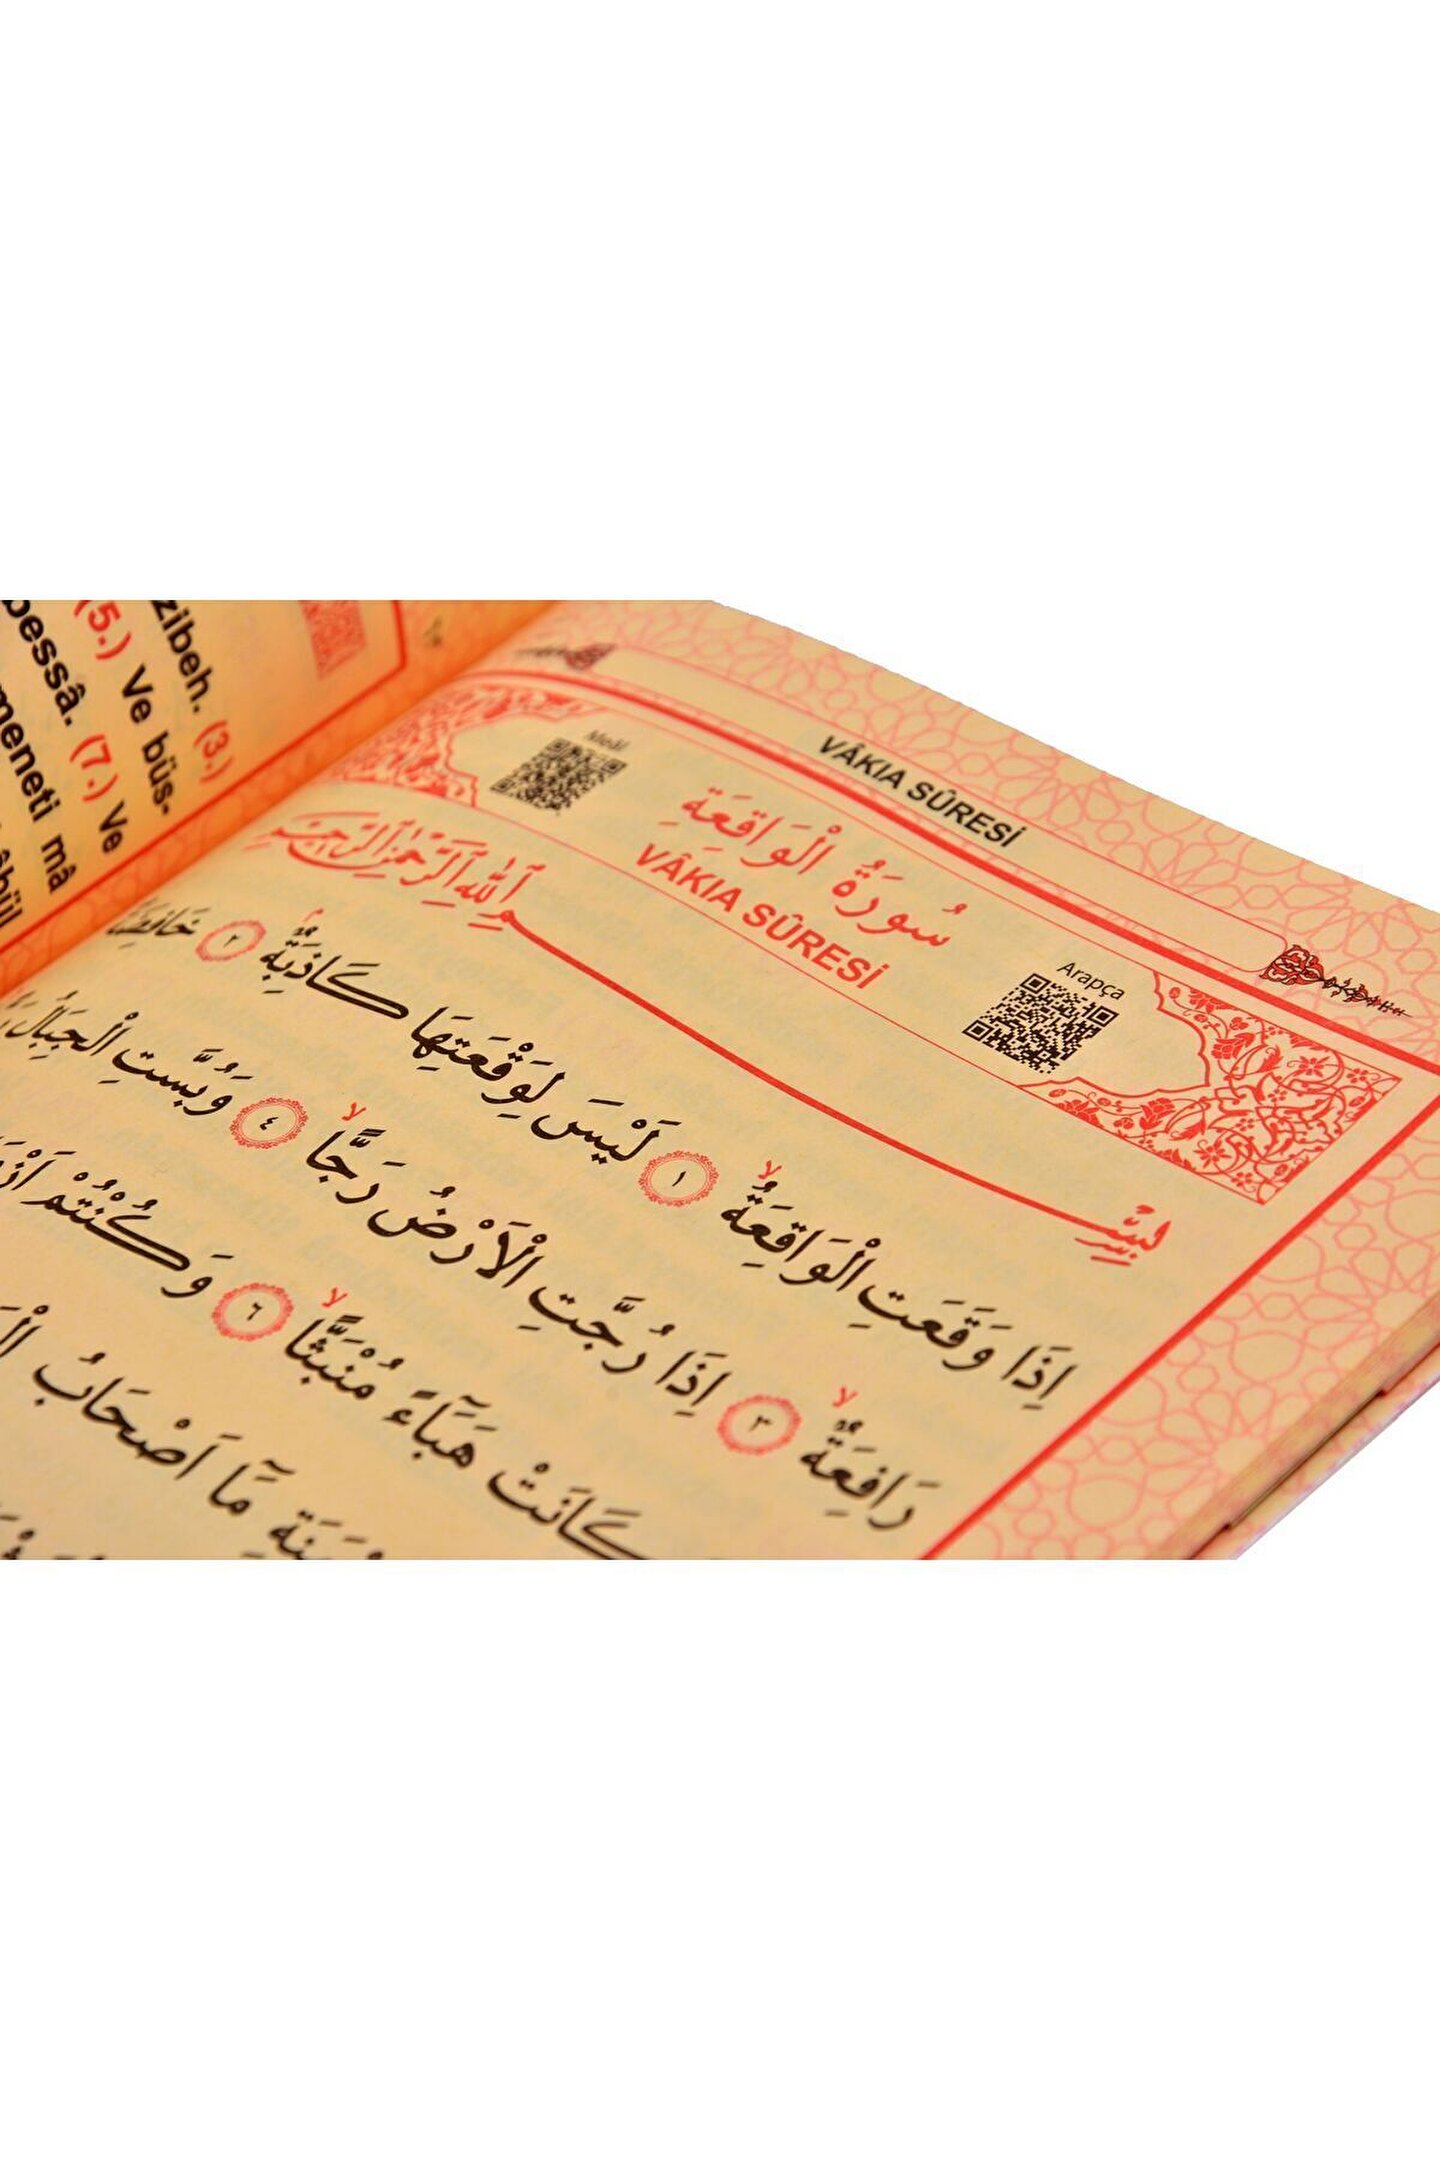 zibeh. (3.)
(5.) Ve büs-
bessâ. (7.) Ve
meneti mâ
VÂKIA SÛRESİ
Meâl
سُورَةُ الْوَاقِعَةِ
VÂKIA SÛRESİ
Arapça
بِسْمِ اللّٰهِ الرَّحْمٰنِ الرَّح۪يمِ
اِذَا وَقَعَتِ الْوَاقِعَةُۙ ﴿١﴾ لَيْسَ لِوَقْعَتِهَا كَاذِبَةٌۢ ﴿٢﴾
رَافِعَةٌۙ ﴿٣﴾ اِذَا رُجَّتِ الْاَرْضُ رَجًّاۙ ﴿٤﴾ وَبُسَّتِ الْجِبَالُ
كَانَتْ هَبَٓاءً مُنْبَثًّاۙ ﴿٦﴾ وَكُنْتُمْ
مَٓا اَصْحَابُ